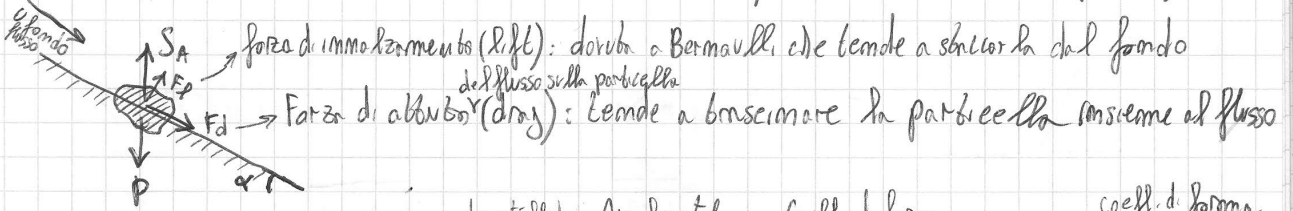 U fondo
flusso
SA
Fl → forza di innalzamento (lift): dovuta a Bernoulli che tende a staccarla dal fondo
del flusso sulla particella
Fd → Forza di attrito (drag): tende a trascinare la particella insieme al flusso
P
α
coeff. di forma